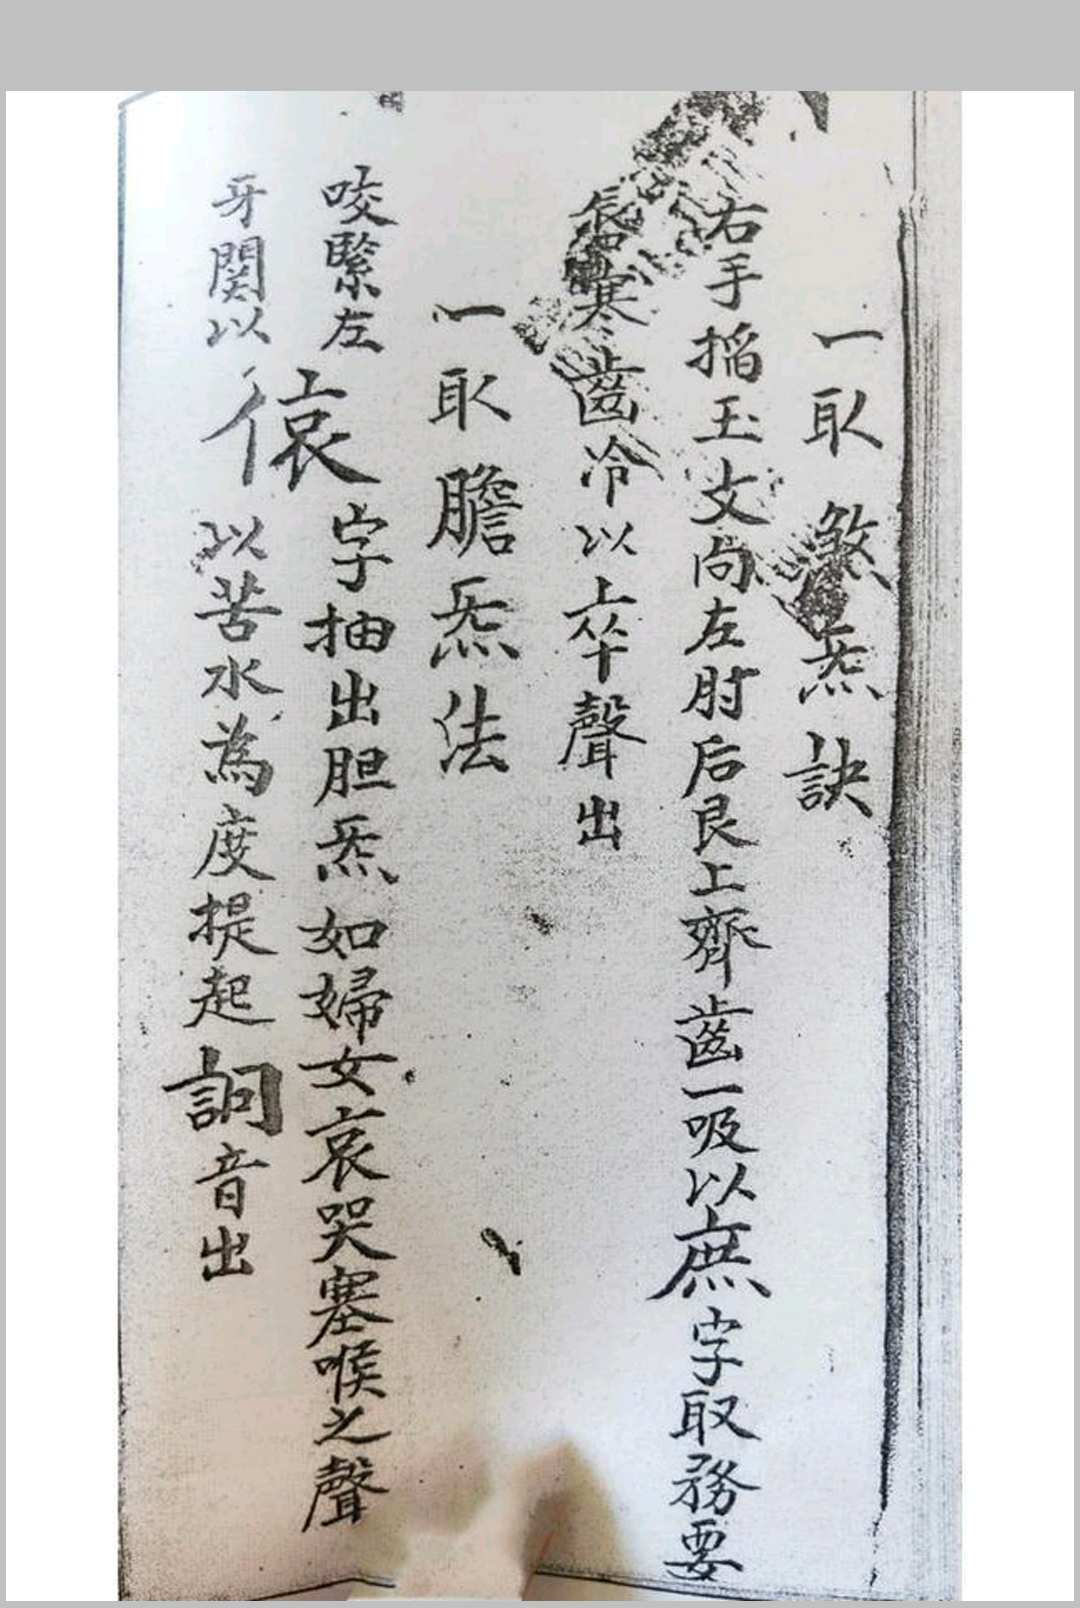 一取煞炁訣
右手搯玉文向左肘后艮上齊齒一吸以庶字取務要
唇寒齒冷以卒聲出
一取膽炁法
咬緊左
牙關以
偯字抽出胆炁如婦女哀哭塞喉之聲
以苦水為度提起詞音出